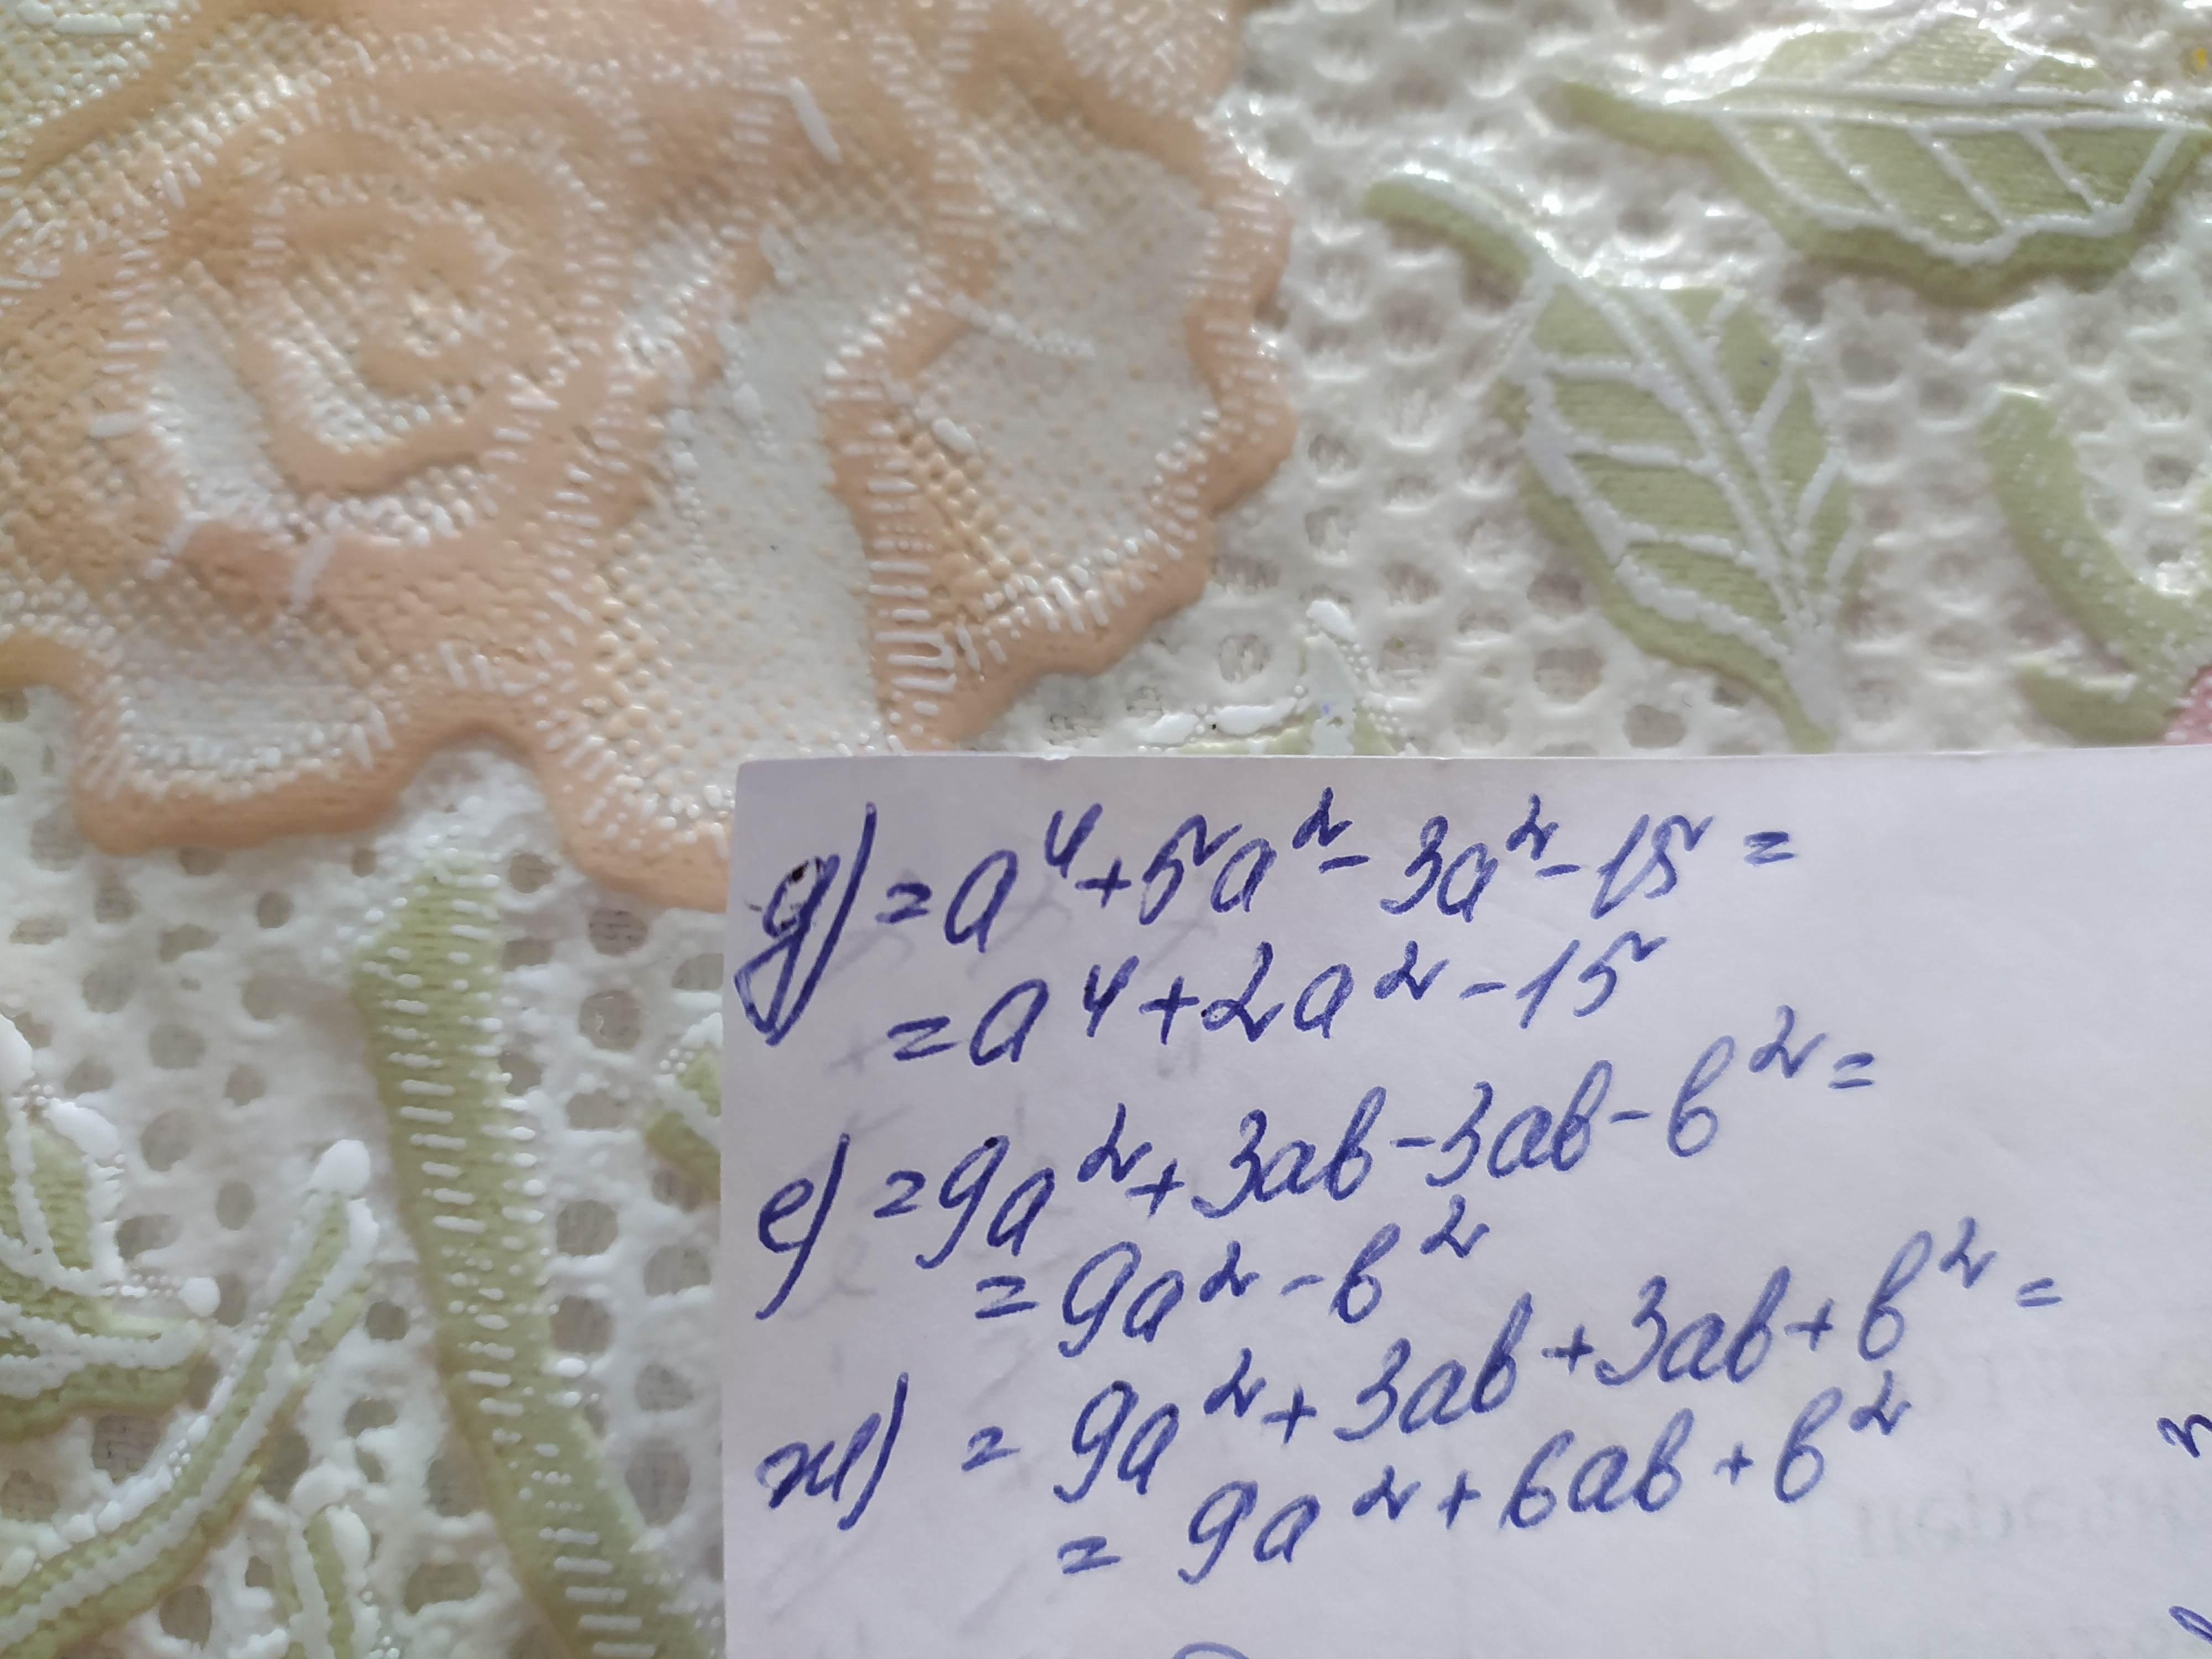 д) = a⁴ + 5a² - 3a² - 15 =
= a⁴ + 2a² - 15
е) = 9a² + 3ab - 3ab - b² =
= 9a² - b²
ж) = 9a² + 3ab + 3ab + b² =
= 9a² + 6ab + b²